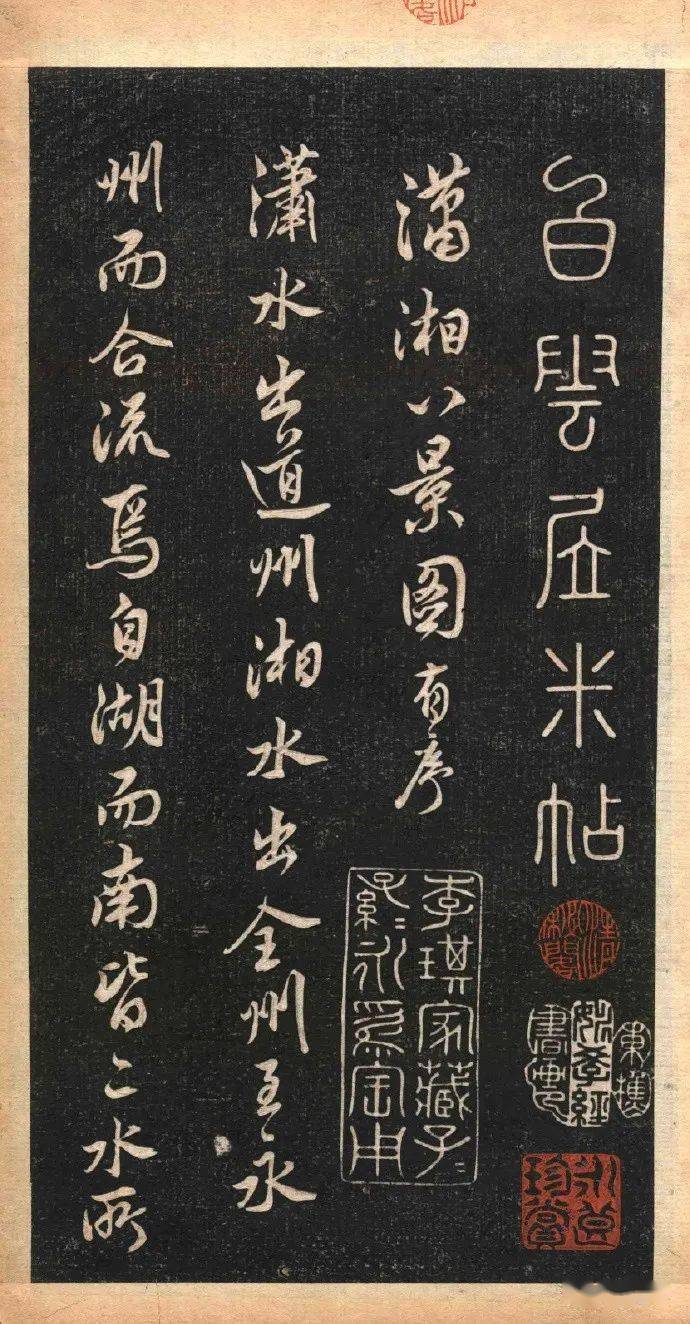 白雲居米帖
瀟湘八景圖有序
李琪家藏子〻
孫〻永為宝用
瀟水出道州湘水出全州至永
州而合流焉自湖而南皆二水所